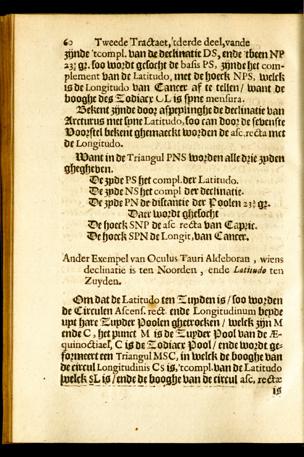 60 Tweede Tractaet, 'tderde deel, vande
zijnde 'tcompl. van de declinatie DS, ende tbeen NP
23½ gr. soo wordt gesocht de basis PS, zijnde het com-
plement van de Latitudo, met de hoeck NPS, welck
is de Longitudo van Cancer af te tellen/ want de
booghe des Zodiacx CL is syne mensura.
Bekent zijnde door afpeylinghe de declinatie van
Arcturus met syne Latitudo, soo can door de sevenste
Voorstel bekent ghemaeckt worden de asc. recta met
de Longitudo.
Want in de Triangul PNS worden alle drie zyden
ghegheven.
De zyde PS het compl. der Latitudo.
De zyde NS het compl der declinatie.
De zyde PN de distantie der Poolen 23½ gr.
Daer wordt ghesocht
De hoeck SNP de asc recta van Capric.
De hoeck SPN de Longit, van Cancer.
Ander Exempel van Oculus Tauri Aldeboran, wiens
declinatie is ten Noorden, ende Latitudo ten
Zuyden.
Om dat de Latitudo ten Zuyden is/ soo worden
de Circulen Ascens. rect. ende Longitudinum beyde
upt hare Zuyder Poolen ghetrocken/ welck zijn M
ende C, het punct M is de Zuyder Pool van de Æ-
quinoctiael, C is de Zodiacx Pool/ ende wordt ge-
formeert een Triangul MSC, in welck de booghe van
de circul Longitudinis CS is, 'tcompl. van de Latitudo
welck SL is/ ende de booghe van de circul asc. rectæ
is